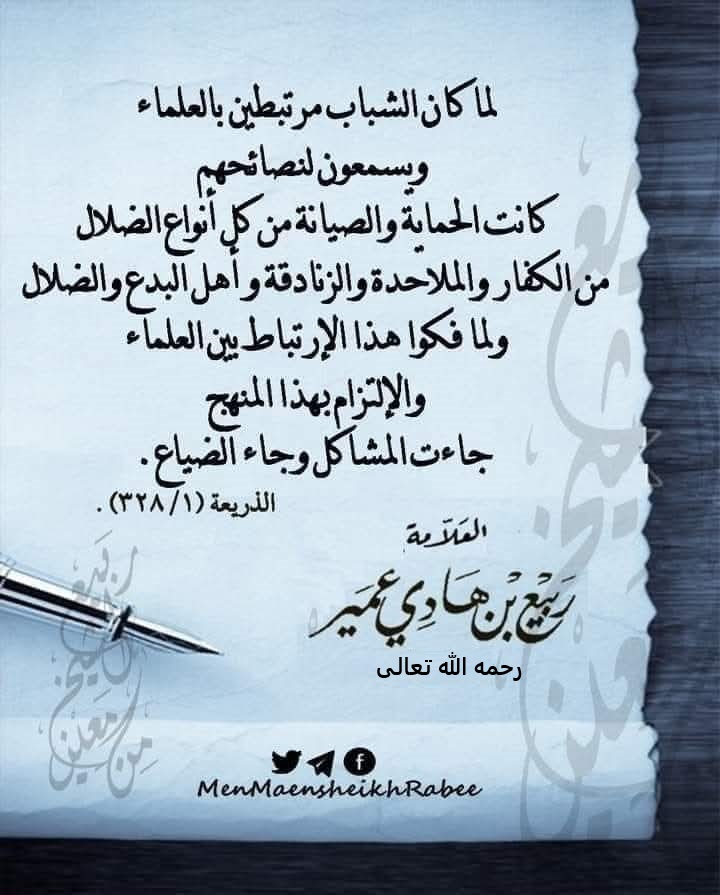 لما كان الشباب مرتبطين بالعلماء
ويسمعون لنصائحهم
كانت الحماية والصيانة من كل أنواع الضلال
من الكفار والملاحدة والزنادقة وأهل البدع والضلال
ولما فكوا هذا الإرتباط بين العلماء
والإلتزام بهذا المنهج
جاءت المشاكل وجاء الضياع .
الذريعة (١/ ٣٢٨) .
العلّامة
رَبِيْع بْن هَادِي عمَير
رحمه الله تعالى
MenMaensheikhRabee